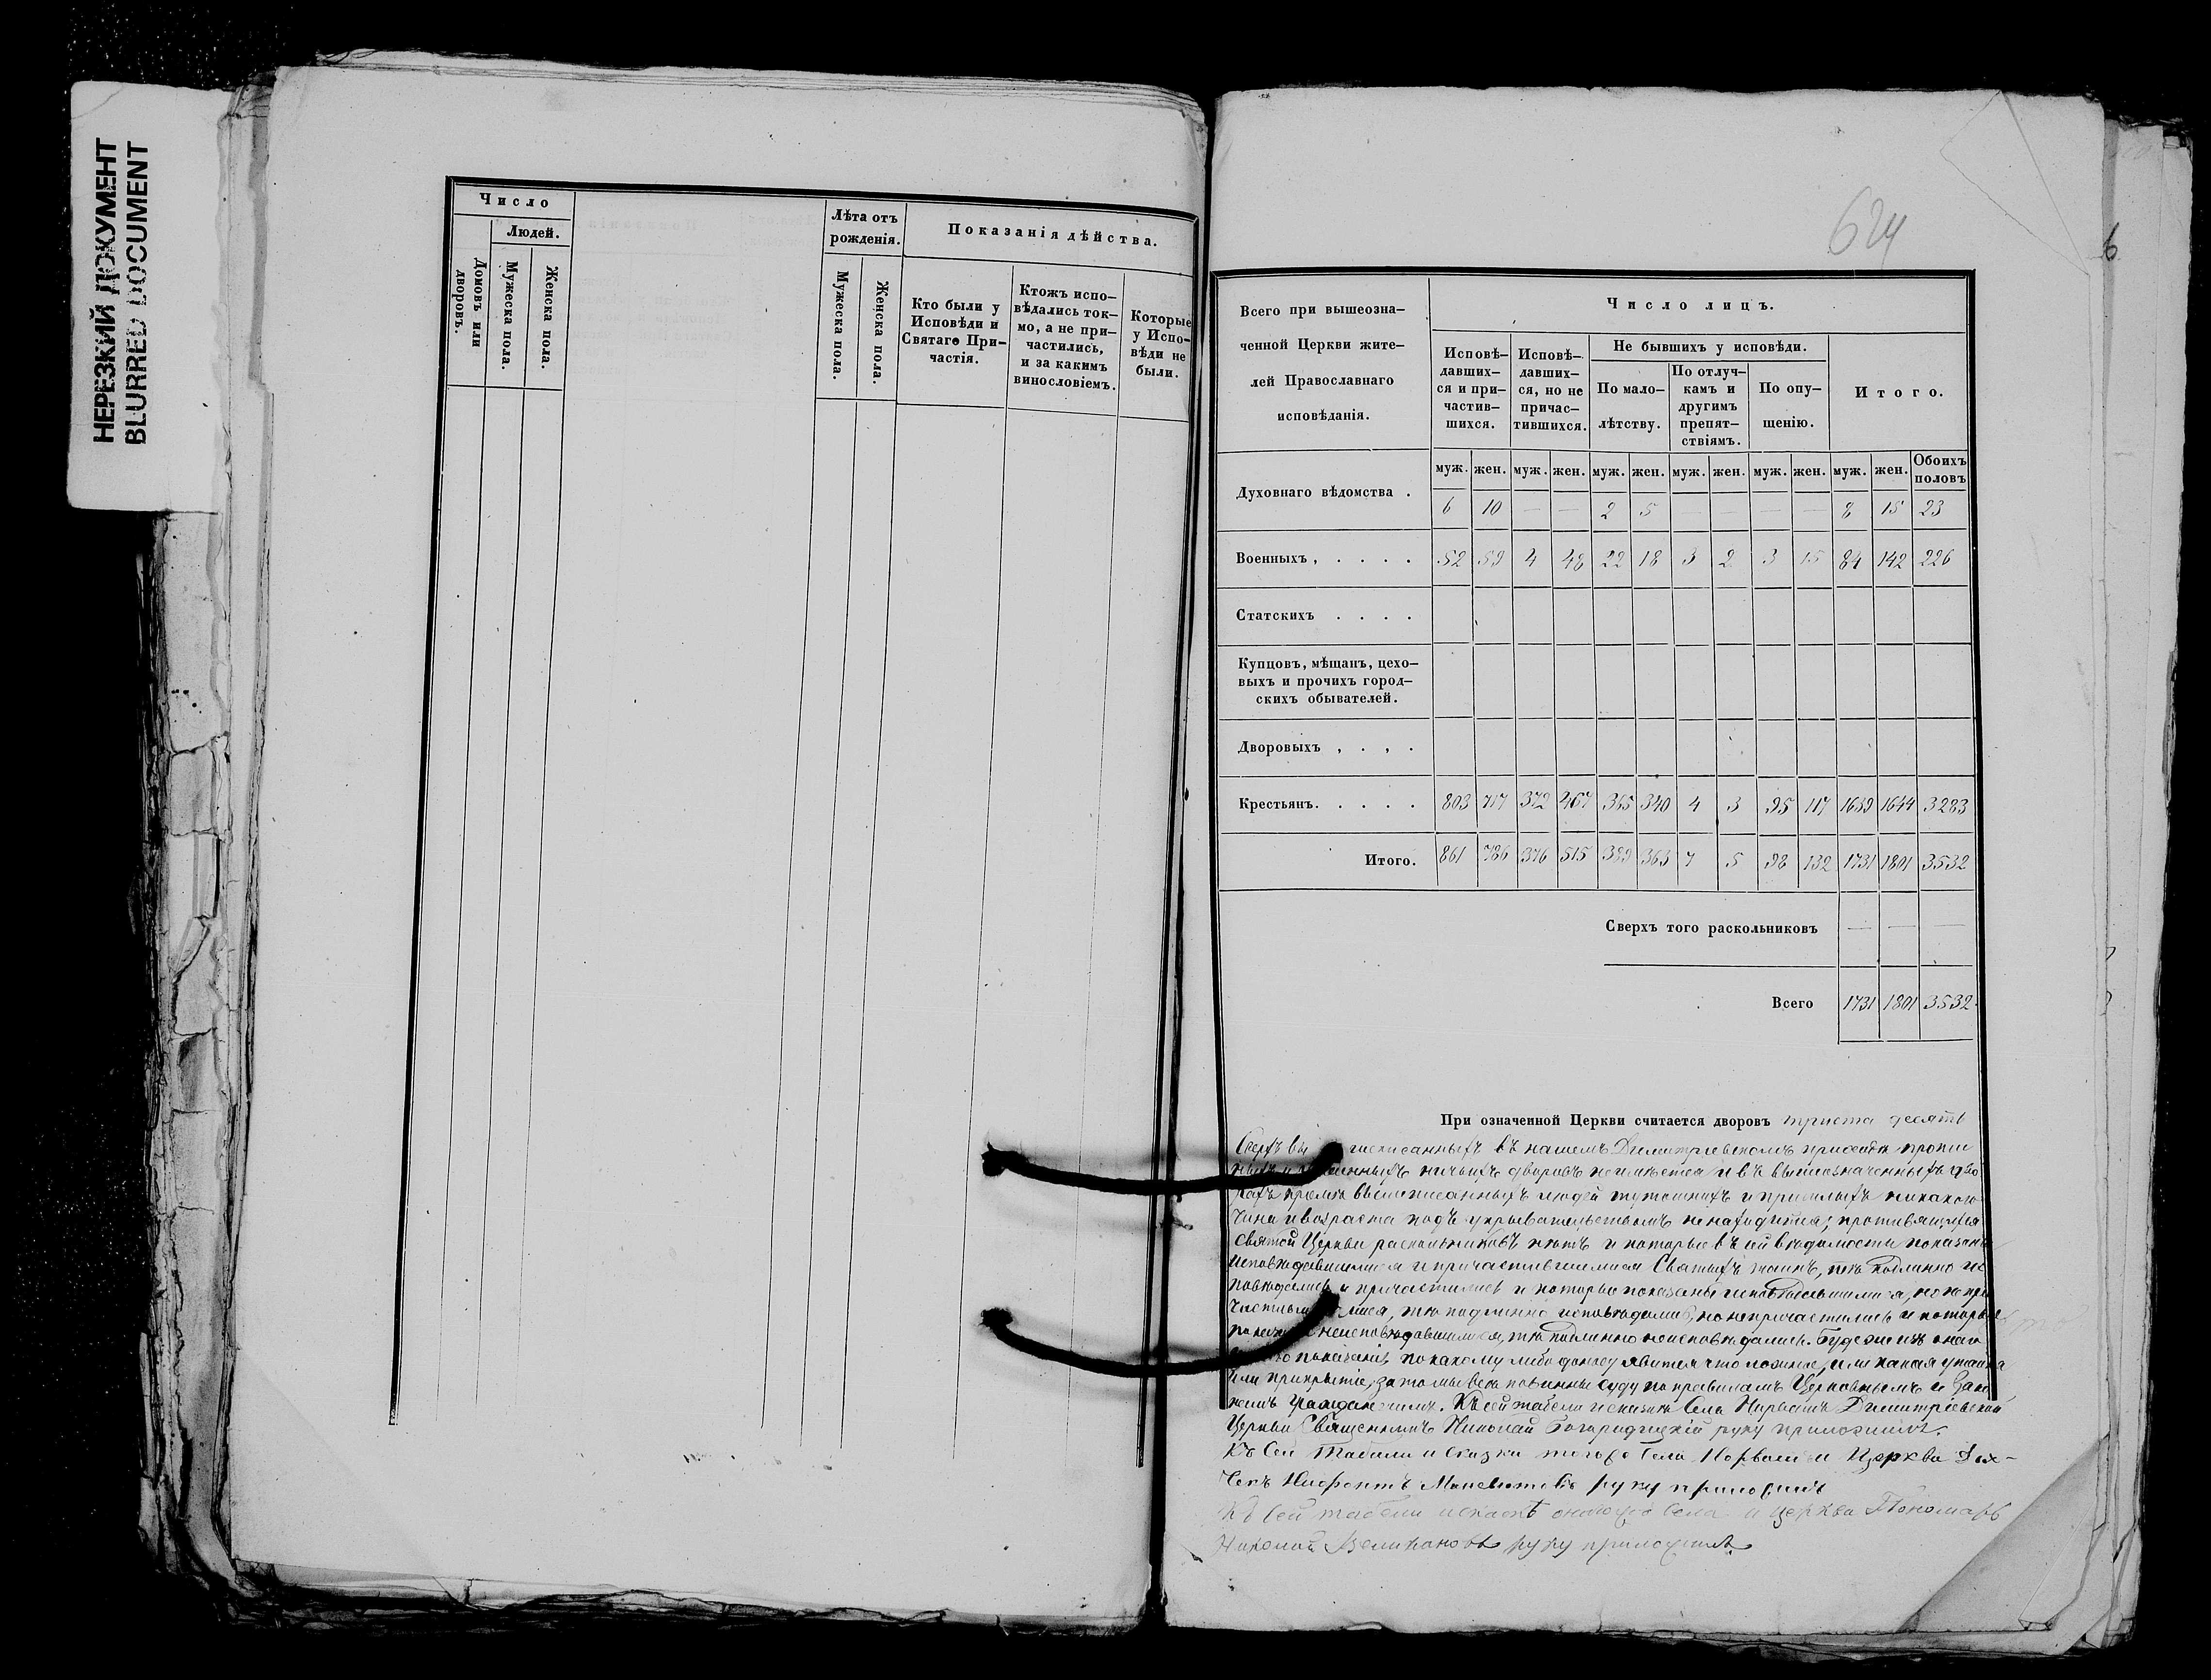 НЕРЕЗКИЙ ДОКУМЕНТ
BLURRED DOCUMENT
Число
Людей.
Домовъ или дворовъ.
Мужеска пола.
Женска пола.
Лѣта отъ
рожденія.
Мужеска пола.
Женска пола.
Показанія дѣйства.
Кто были у
Исповѣди и
Святаго При-
частія.
Ктожъ испо-
вѣдались ток-
мо, а не при-
частились,
и за какимъ
винословіемъ.
Которые
у Испо-
вѣди не
были.
624
6
Всего при вышеозна-
ченной Церкви жите-
лей Православнаго
исповѣданія.
Число лицъ.
Исповѣ-
давших-
ся и при-
частив-
шихся.
Исповѣ-
давших-
ся, но не
причас-
тившихся.
Не бывшихъ у исповѣди.
По мало-
лѣтству.
По отлуч-
камъ и
другимъ
препят-
ствіямъ.
По опу-
щенію.
Итого.
муж. жен. муж. жен. муж. жен. муж. жен. муж. жен. муж. жен. Обоихъ половъ
Духовнаго вѣдомства . 6 10 — — 2 5 — — — — 8 15 23
Военныхъ, . . . . 52 59 4 48 22 18 3 2 3 15 84 142 226
Статскихъ . . . .
Купцовъ, мѣщанъ, цехо-
выхъ и прочихъ город-
скихъ обывателей.
Дворовыхъ , . , .
Крестьянъ. . . . . 803 717 372 467 365 340 4 3 95 117 1639 1644 3283
Итого. 861 786 376 515 389 363 7 5 98 132 1731 1801 3532
Сверхъ того раскольниковъ — — —
Всего 1731 1801 3532.
При означенной Церкви считается дворовъ триста десять
Сверхъ вы писанныхъ въ нашемъ Димитріевскомъ приходѣ
ничьихъ дворовъ неимѣется и въ вышеозначенныхъ дво
рахъ кромѣ вышеписанныхъ людей тутошнихъ и пришлыхъ никакого
чина и возраста подъ укрывательствомъ ненаходится; противящихся
святой Церкви раскольниковъ нѣтъ и которые въ сей вѣдомости показаны
исповѣдавшимися и причастившимися Святыхъ таинъ, тѣ подлинно ис
повѣдались и причастились и которые показаны исповѣдавшимися, но непри
частившимися, тѣ подлинно исповѣдались, но непричастились и которые
показаны неисповѣдавшимися, тѣ подлинно неисповѣдались. Буде же изъ онаго
показанія покакому либо доносу явится что ложное, или какая утайка
или прикрытіе, за то мы всѣ повинны суду по правиламъ Церковнымъ и Зако
намъ гражданскимъ. Къ сей табели и сказкѣ Села Димитріевской
Церкви Священникъ Николай Богородицкій руку приложилъ.
Къ сей табели и сказки того же села и Церкви Дья-
чекъ Нифонтъ руку приложилъ
Къ сей табели и сказкѣ онагоже села и церкви Пономарь
Николай Великановъ руку приложилъ